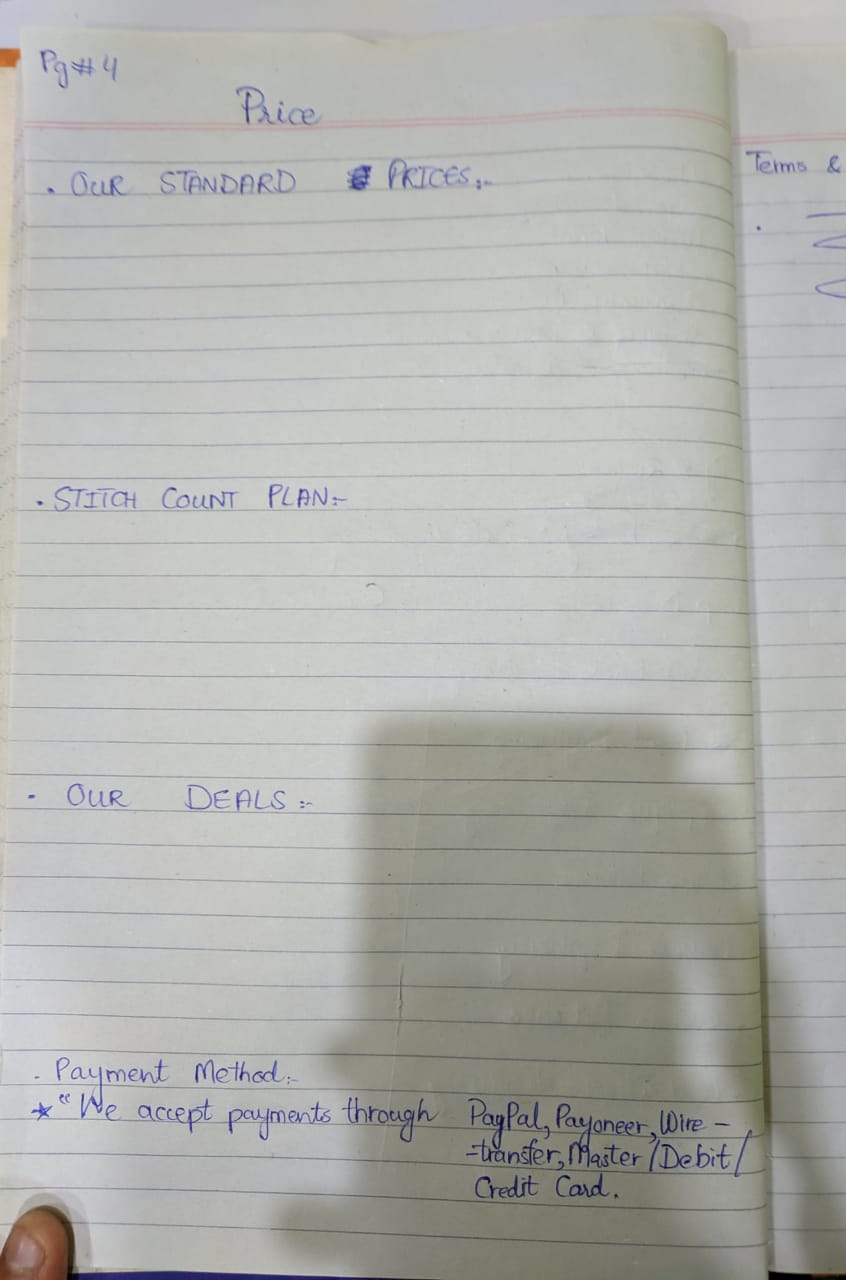 Pg#4
Price
. OUR STANDARD PRICES:-
. STITCH COUNT PLAN:-
- OUR DEALS :-
. Payment Method:-
* "We accept payments through PayPal, Payoneer, Wire -
-transfer, Master/Debit/
Credit Card.
Terms &